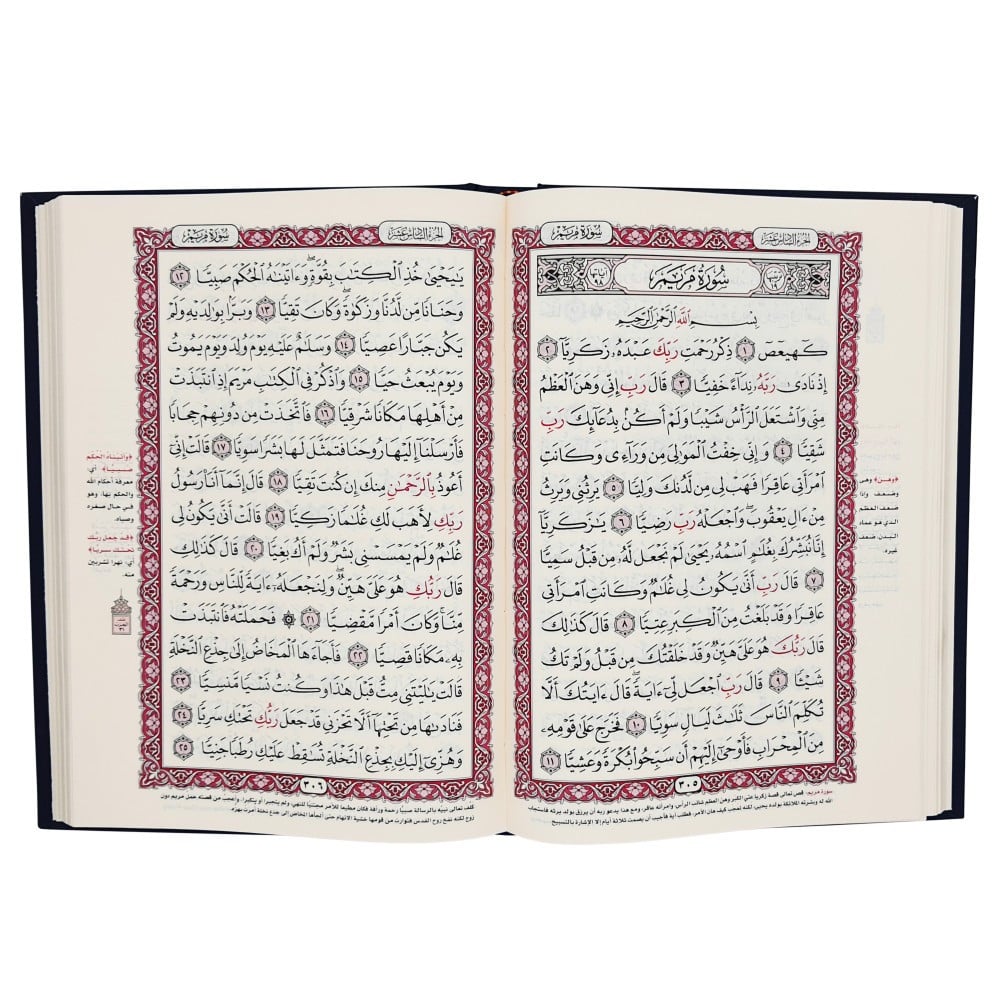 سورة مريم
الجزء السادس عشر
ترتيبها ١٩
سُورَةُ مَرْيَمَ
آياتها ٩٨
بِسْمِ ٱللَّهِ ٱلرَّحْمَٰنِ ٱلرَّحِيمِ
كٓهيعٓصٓ ١ ذِكْرُ رَحْمَتِ رَبِّكَ عَبْدَهُۥ زَكَرِيَّآ ٢
إِذْ نَادَىٰ رَبَّهُۥ نِدَآءً خَفِيًّا ٣ قَالَ رَبِّ إِنِّى وَهَنَ ٱلْعَظْمُ
مِنِّى وَٱشْتَعَلَ ٱلرَّأْسُ شَيْبًا وَلَمْ أَكُنۢ بِدُعَآئِكَ رَبِّ
شَقِيًّا ٤ وَإِنِّى خِفْتُ ٱلْمَوَٰلِىَ مِن وَرَآءِى وَكَانَتِ
ٱمْرَأَتِى عَاقِرًا فَهَبْ لِى مِن لَّدُنكَ وَلِيًّا ٥ يَرِثُنِى وَيَرِثُ
مِنْ ءَالِ يَعْقُوبَ ۖ وَٱجْعَلْهُ رَبِّ رَضِيًّا ٦ يَٰزَكَرِيَّآ
إِنَّا نُبَشِّرُكَ بِغُلَٰمٍ ٱسْمُهُۥ يَحْيَىٰ لَمْ نَجْعَل لَّهُۥ مِن قَبْلُ سَمِيًّا
٧ قَالَ رَبِّ أَنَّىٰ يَكُونُ لِى غُلَٰمٌ وَكَانَتِ ٱمْرَأَتِى
عَاقِرًا وَقَدْ بَلَغْتُ مِنَ ٱلْكِبَرِ عِتِيًّا ٨ قَالَ كَذَٰلِكَ
قَالَ رَبُّكَ هُوَ عَلَىَّ هَيِّنٌ وَقَدْ خَلَقْتُكَ مِن قَبْلُ وَلَمْ تَكُ
شَيْـًٔا ٩ قَالَ رَبِّ ٱجْعَل لِّىٓ ءَايَةً ۚ قَالَ ءَايَتُكَ أَلَّا
تُكَلِّمَ ٱلنَّاسَ ثَلَٰثَ لَيَالٍ سَوِيًّا ١٠ فَخَرَجَ عَلَىٰ قَوْمِهِۦ
مِنَ ٱلْمِحْرَابِ فَأَوْحَىٰٓ إِلَيْهِمْ أَن سَبِّحُوا۟ بُكْرَةً وَعَشِيًّا ١١
٣٠٥
﴿وهن﴾ وهي
وضعف وإذا
ضعف العظم
الذي هو عماد
البدن، ضعف
غيره
سورة مريم: قص تعالى قصة زكريا
سورة مريم
الجزء السادس عشر
يَٰيَحْيَىٰ خُذِ ٱلْكِتَٰبَ بِقُوَّةٍ ۖ وَءَاتَيْنَٰهُ ٱلْحُكْمَ صَبِيًّا ١٢
وَحَنَانًا مِّن لَّدُنَّا وَزَكَوٰةً ۖ وَكَانَ تَقِيًّا ١٣ وَبَرًّۢا بِوَٰلِدَيْهِ وَلَمْ
يَكُن جَبَّارًا عَصِيًّا ١٤ وَسَلَٰمٌ عَلَيْهِ يَوْمَ وُلِدَ وَيَوْمَ يَمُوتُ
وَيَوْمَ يُبْعَثُ حَيًّا ١٥ وَٱذْكُرْ فِى ٱلْكِتَٰبِ مَرْيَمَ إِذِ ٱنتَبَذَتْ
مِنْ أَهْلِهَا مَكَانًا شَرْقِيًّا ١٦ فَٱتَّخَذَتْ مِن دُونِهِمْ حِجَابًا
فَأَرْسَلْنَآ إِلَيْهَا رُوحَنَا فَتَمَثَّلَ لَهَا بَشَرًا سَوِيًّا ١٧ قَالَتْ إِنِّىٓ
أَعُوذُ بِٱلرَّحْمَٰنِ مِنكَ إِن كُنتَ تَقِيًّا ١٨ قَالَ إِنَّمَآ أَنَا۠ رَسُولُ
رَبِّكِ لِأَهَبَ لَكِ غُلَٰمًا زَكِيًّا ١٩ قَالَتْ أَنَّىٰ يَكُونُ لِى
غُلَٰمٌ وَلَمْ يَمْسَسْنِى بَشَرٌ وَلَمْ أَكُ بَغِيًّا ٢٠ قَالَ كَذَٰلِكِ
قَالَ رَبُّكِ هُوَ عَلَىَّ هَيِّنٌ ۖ وَلِنَجْعَلَهُۥٓ ءَايَةً لِّلنَّاسِ وَرَحْمَةً
مِّنَّا ۚ وَكَانَ أَمْرًا مَّقْضِيًّا ٢١ ۞ فَحَمَلَتْهُ فَٱنتَبَذَتْ
بِهِۦ مَكَانًا قَصِيًّا ٢٢ فَأَجَآءَهَا ٱلْمَخَاضُ إِلَىٰ جِذْعِ ٱلنَّخْلَةِ
قَالَتْ يَٰلَيْتَنِى مِتُّ قَبْلَ هَٰذَا وَكُنتُ نَسْيًا مَّنسِيًّا ٢٣
فَنَادَىٰهَا مِن تَحْتِهَآ أَلَّا تَحْزَنِى قَدْ جَعَلَ رَبُّكِ تَحْتَكِ سَرِيًّا ٢٤
وَهُزِّىٓ إِلَيْكِ بِجِذْعِ ٱلنَّخْلَةِ تُسَٰقِطْ عَلَيْكِ رُطَبًا جَنِيًّا ٢٥
٣٠٦
﴿وآتيناه الحكم
صبيا﴾ أي:
معرفة أحكام الله
والحكم بها، وهو
في حال صغره
وصباه.
﴿قد جعل ربك
تحتك سريا﴾
أي: نهرا تشربين
منه.